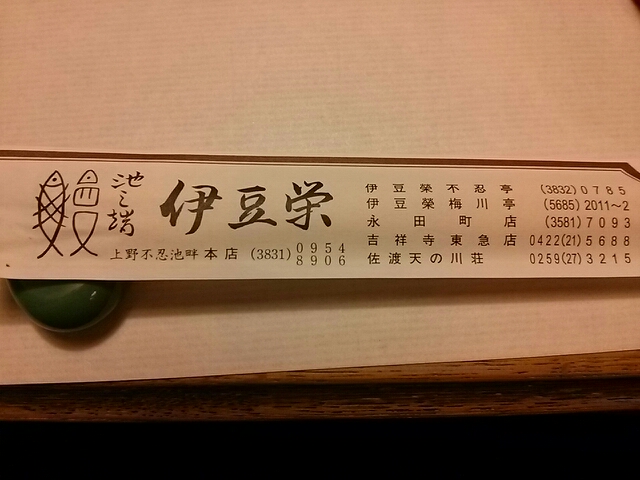 池之端
伊豆栄
上野不忍池畔本店 (3831) 0954
8906
伊豆榮不忍亭 (3832)0785
伊豆榮梅川亭 (5685)2011〜2
永田町店 (3581)7093
吉祥寺東急店 0422(21)5688
佐渡天の川荘 0259(27)3215